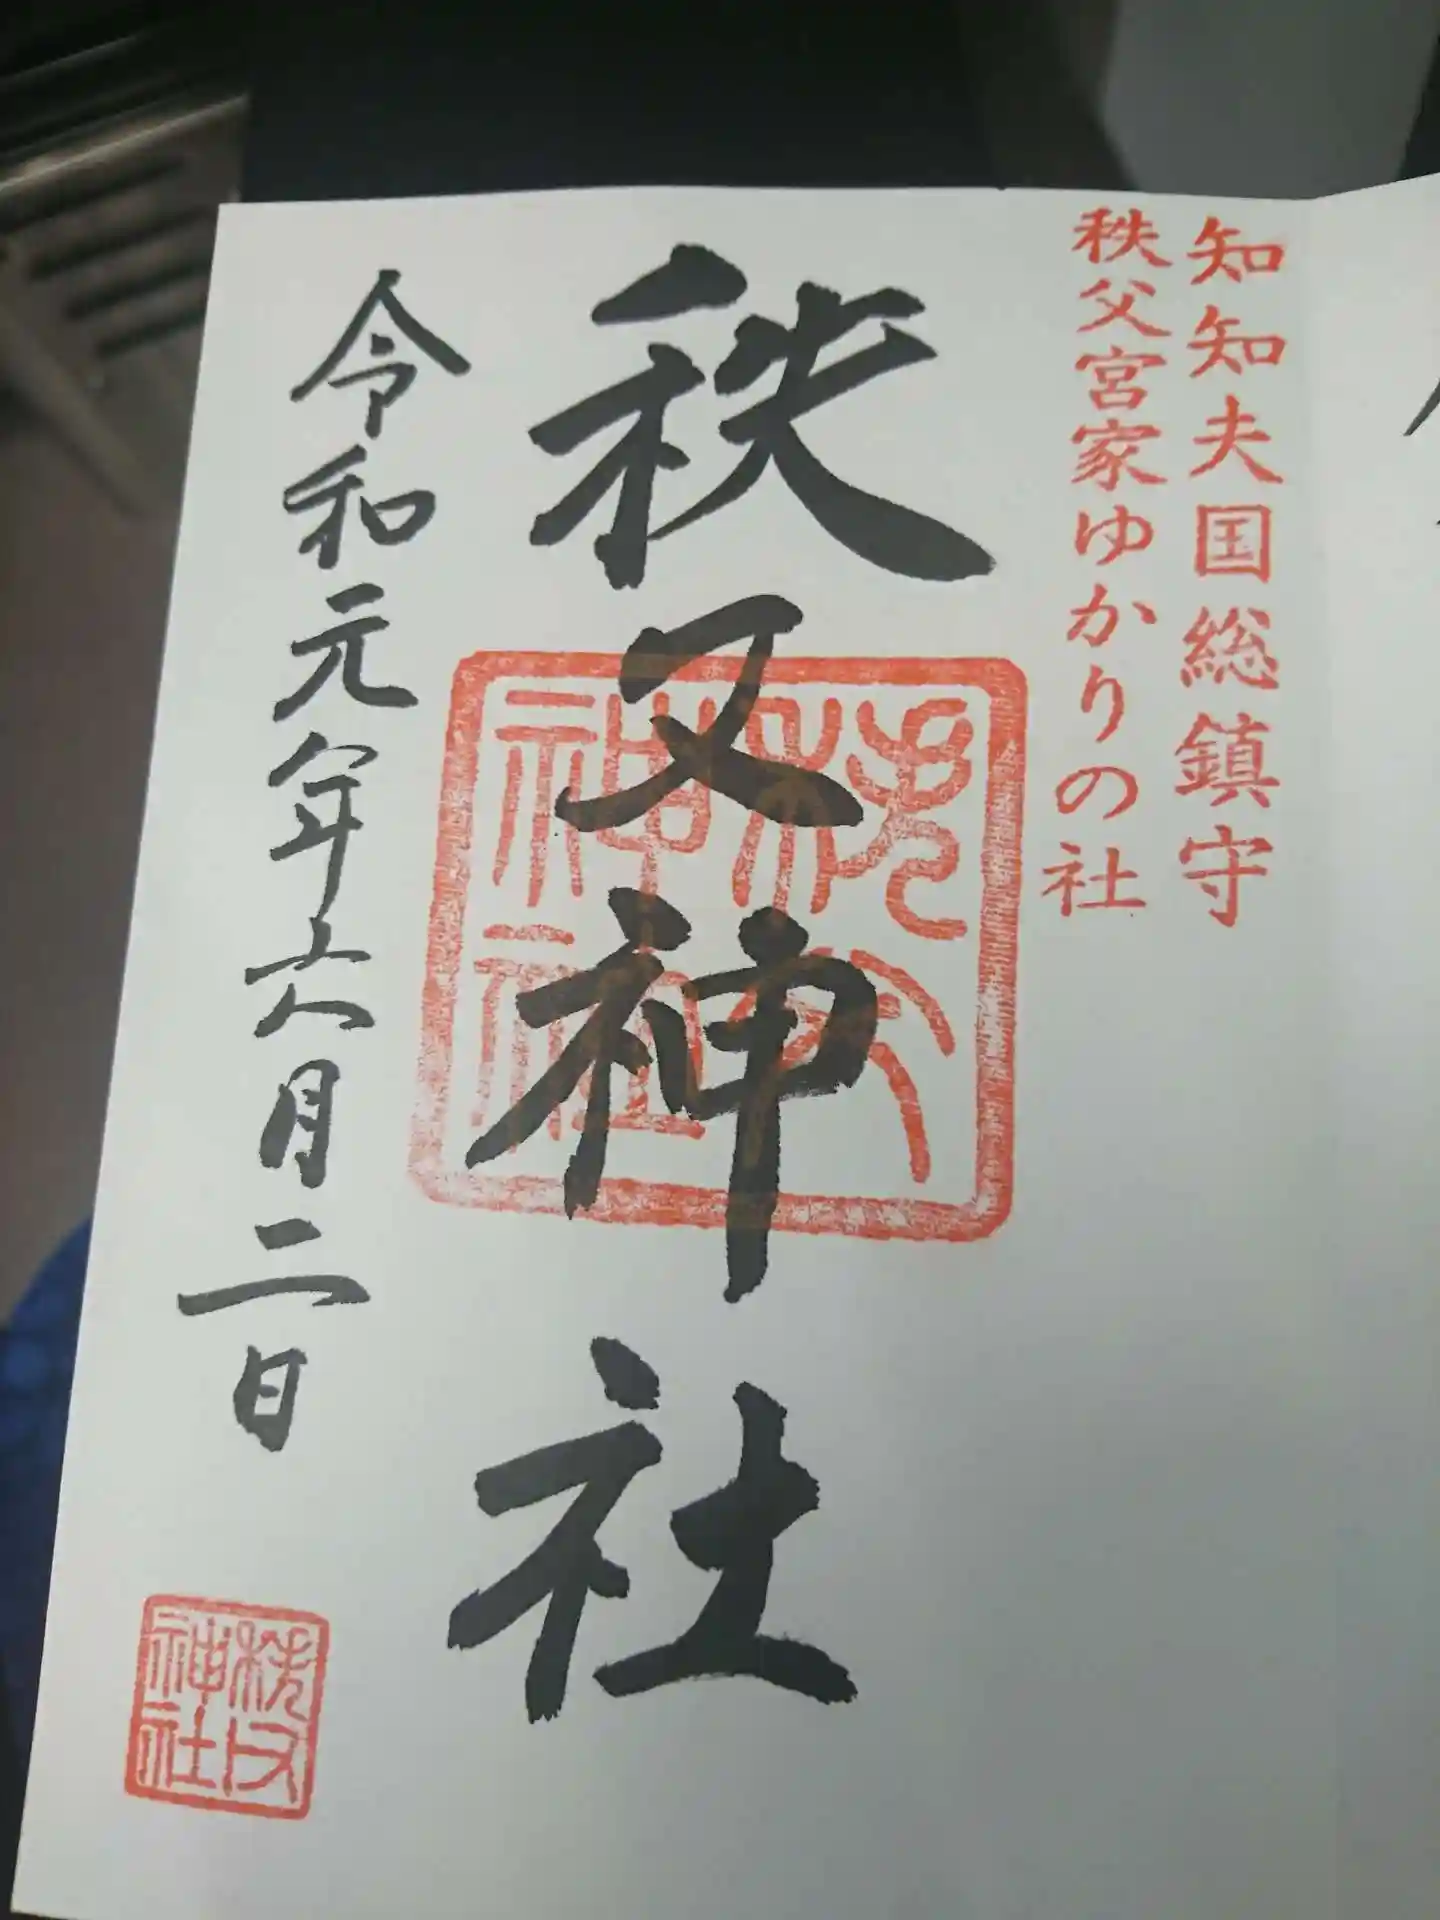 知知夫国総鎮守
秩父宮家ゆかりの社
秩父神社
令和元年六月二日
秩父神社
秩父神社